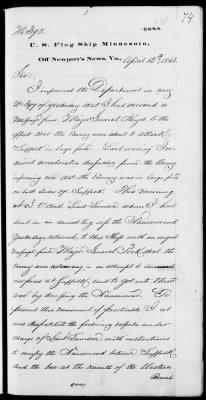 74
No 298.
U. S. Flag Ship Minnesota,
Off Newport's News, Va., April 12th 1863.
Sir:
I informed the Department in my
No of yesterday that I had received a
message from Major General Keyes to the
effect that the enemy were about to attack
Suffolk in large force. Last evening I re-
ceived corroborative despatches from the Army
informing me that the Enemy was in large force
on both sides of Suffolk. This morning
at 3 O'Clock Lieut Lamson whom I had
sent in an armed tug up the Nansemond
yesterday returned to this Ship with an urgent
message from Major General Peck that the
enemy was advancing in an attempt to
our forces at Suffolk and to get into their
rear by crossing the Nansemond. To
prevent this movement if practicable I at
once despatched the following vessels under
charge of Lieut Lamson with instructions
to occupy the Nansemond between Suffolk
and the bar at the mouth of the Western
Branch
(over)